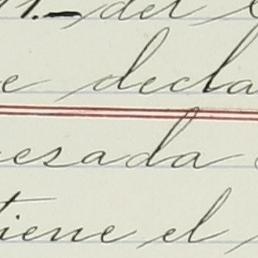 del
e decla
esada
tiene el